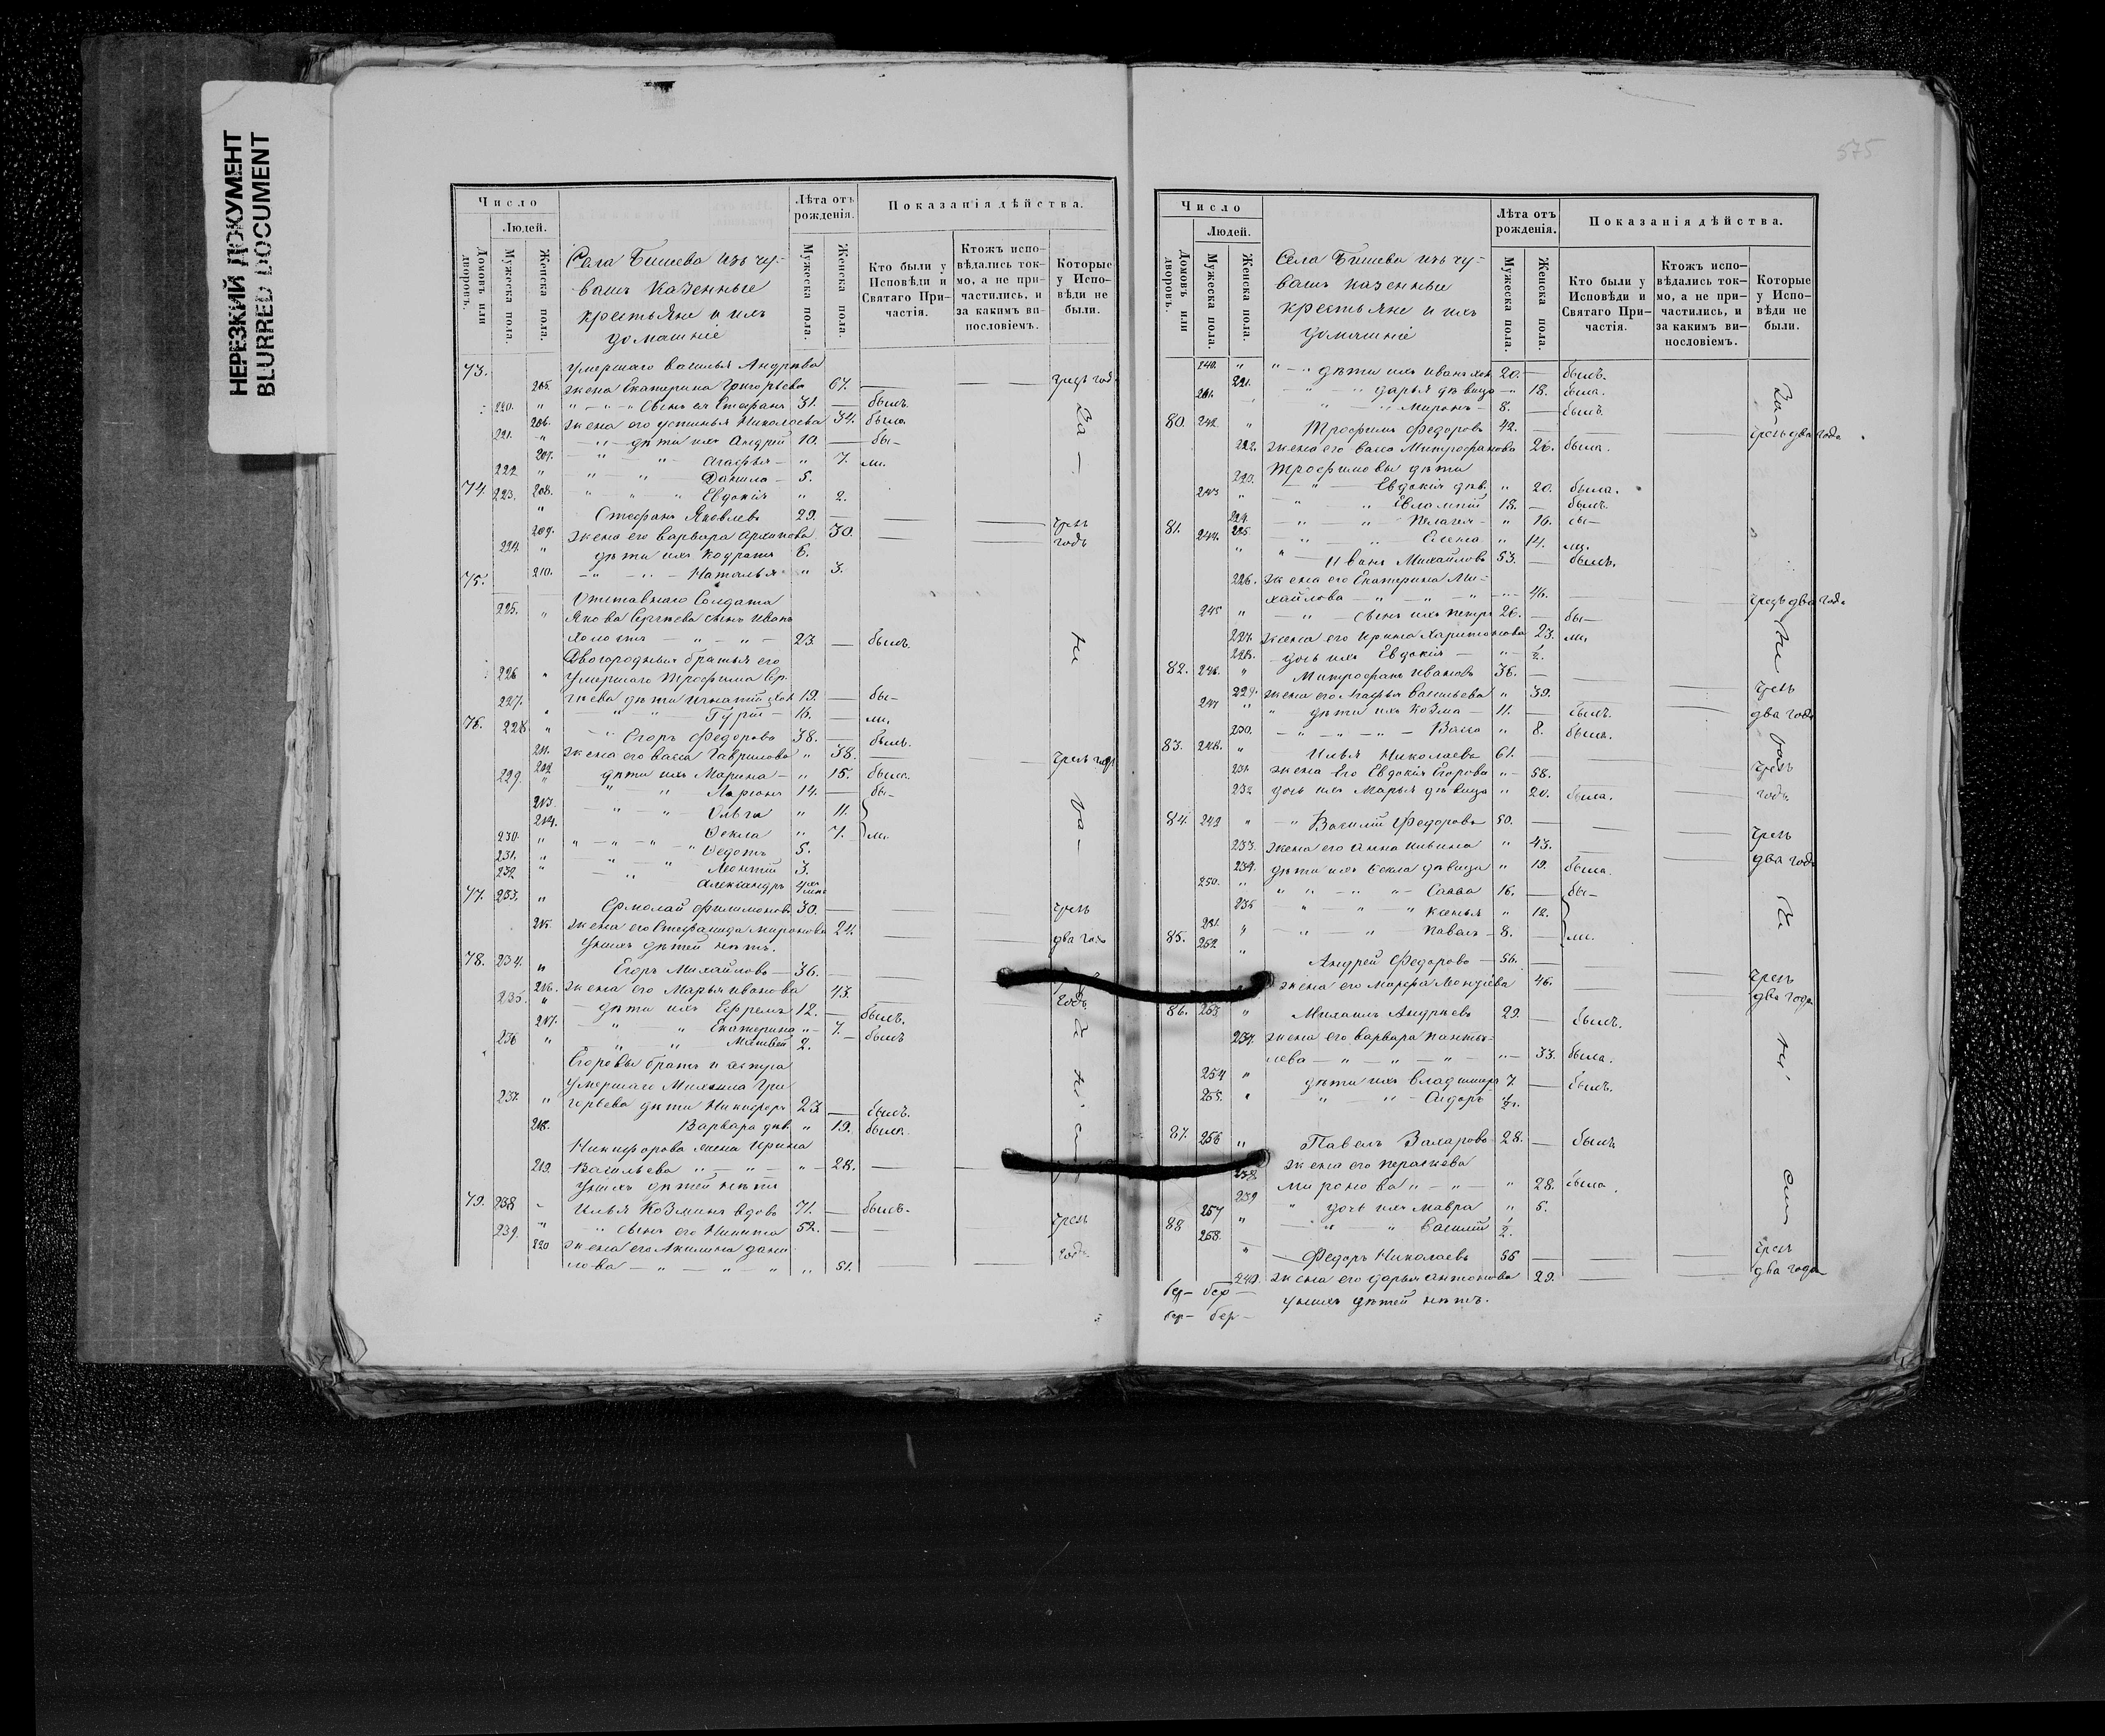 НЕРЕЗКИЙ ДОКУМЕНТ
BLURRED DOCUMENT
Число
Людей.
Домовъ или дворовъ.
Мужеска пола.
Женска пола.
Села Бишева изъ чу-
вашъ казенные
крестьяне и ихъ
домашніе
Лѣта отъ рожденія.
Мужеска пола.
Женска пола.
Показанія дѣйства.
Кто были у Исповѣди и Святаго Причастія.
Ктожъ исповѣдались токмо, а не причастились, и за какимъ винословіемъ.
Которые у Исповѣди не были.
73. умершаго Василья Андреева
205. жена Екатерина Григорьева 67. чрезъ год.
220. " " сынъ ея Стефанъ 31. былъ.
206. жена его Устинья Николаева 34. была.
221. " дѣти ихъ Андрей 10. бы-
207. " " Агафья " 7. ли.
222 " " " Данила 5.
208. " " Евдокія " 2.
74. 223. " Стефанъ Яковлевъ 29. чрезъ
209. жена его Варвара Архипова 30. годъ
224. " дѣти ихъ Кодратъ 6.
210. " " Наталья " 3.
75. Отставнаго Солдата
225. " Якова Сергѣева сынъ Иванъ
холостъ " " 23. былъ.
Двогородныя братья его
226 " умершаго Трофима Сер-
гѣева дѣти Игнатій хол 19. бы-
227. " " " Гурій 15. ли.
76. 228 " " Егоръ Федоровъ 38. былъ.
211. жена его Васса Гаврилова " 38. чрезъ годъ
212 дѣти ихъ Марина " 15. была.
229. " " " Ларіонъ 14. бы-
213. " " Ольга " 11.
214. " " Фекла " 7. ли.
230. " " " " Федотъ 5.
231. " " " Леонтій 3.
232 " " Александръ
77. 233. " Ермолай Филимоновъ 30. чрезъ
215. жена его Степанида Миронова 24. два года
у нихъ дѣтей нѣтъ.
78. 234. " Егоръ Михайловъ 36.
216. жена его Марья Иванова 43. годъ
235. " дѣти ихъ Ефремъ 12. былъ.
217. " " Екатерина " 7. былъ
236 " " " Матвей 2.
Егоровы братъ и сестра
умершаго Михаила Гри
237. " горьева дѣти Никифоръ 23 былъ.
218. Варвара дѣв. " 19. была.
Никифорова жена Ирина
219. Васильева " " " 28.
у нихъ дѣтей нѣтъ
79. 238 " Илья Козминъ вдовъ 71. былъ.
239. " " сынъ его Никита 52. чрезъ
220 жена его Акилина Дани
лова " " " " 51. годъ.
575
Число
Людей.
Домовъ или дворовъ.
Мужеска пола.
Женска пола.
Села Бишева изъ чу-
вашъ казенные
крестьяне и ихъ
домашніе
Лѣта отъ рожденія.
Мужеска пола.
Женска пола.
Показанія дѣйства.
Кто были у Исповѣди и Святаго Причастія.
Ктожъ исповѣдались токмо, а не причастились, и за какимъ винословіемъ.
Которые у Исповѣди не были.
240. " " " дѣти ихъ Иванъ хол. 20. былъ.
221. " " Дарья дѣвица " 18. была.
241. " " " Миронъ 8. былъ.
80. 242 " Трофимъ Федоровъ 42. чрезъ два года
222. жена его Васса Митрофанова 26. была.
Трофимовы дѣти
" Евдокія дѣв. " 20. была.
243 " " " Евлампій 18. былъ.
224. " " Пелагея " 16. бы-
225. " " Елена " 14. ли.
81. 244. " " Иванъ Михайловъ 53. былъ.
226. жена его Екатерина Ми-
хайлова " " " " 46. чрезъ два года
245 " " сынъ ихъ Петръ 26. бы-
227. жена его Ирина Харитонова 23. ли.
228. дочь ихъ Евдокія " 1/2.
82. 246. " Митрофанъ Ивановъ 36. чрезъ
229. жена его Агафья Васильева " 39. два года
247 " " дѣти ихъ Козма 11. былъ.
230. " " " Васса " 8. была.
83. 248. " Илья Николаевъ 61. чрезъ
231. жена его Евдокія Егорова " 58. годъ.
232 дочь ихъ Марья дѣвица " 20. была.
84. 249 " " Василій Федоровъ 50. чрезъ
233. жена его Анна Ильина " 43. два года
234. дѣти ихъ Фекла дѣвица " 19. была.
250. " " " " Савва 16. бы-
235 " " " Ксенья " 12.
251. " " " Павелъ 8. ли.
85. 252 " Андрей Федоровъ 56. чрезъ
жена его Марфа 46. два года
86. 253 " Михаилъ Андреевъ 29. былъ.
237. жена его Варвара Пантѣ-
лева " " " " 33. была.
254 " дѣти ихъ Владимиръ 7. былъ.
255. " " " Сидоръ 1/2.
87. 256 " Павелъ Захаровъ 28. былъ
жена его Пераскева
238. Миронова " " " 28. была.
239 " дочь ихъ Мавра " 5.
257 " " " Василій 1/2.
88 258. " Федоръ Николаевъ 55 чрезъ
240. жена его Дарья Антонова 29. два года
у нихъ дѣтей нѣтъ.